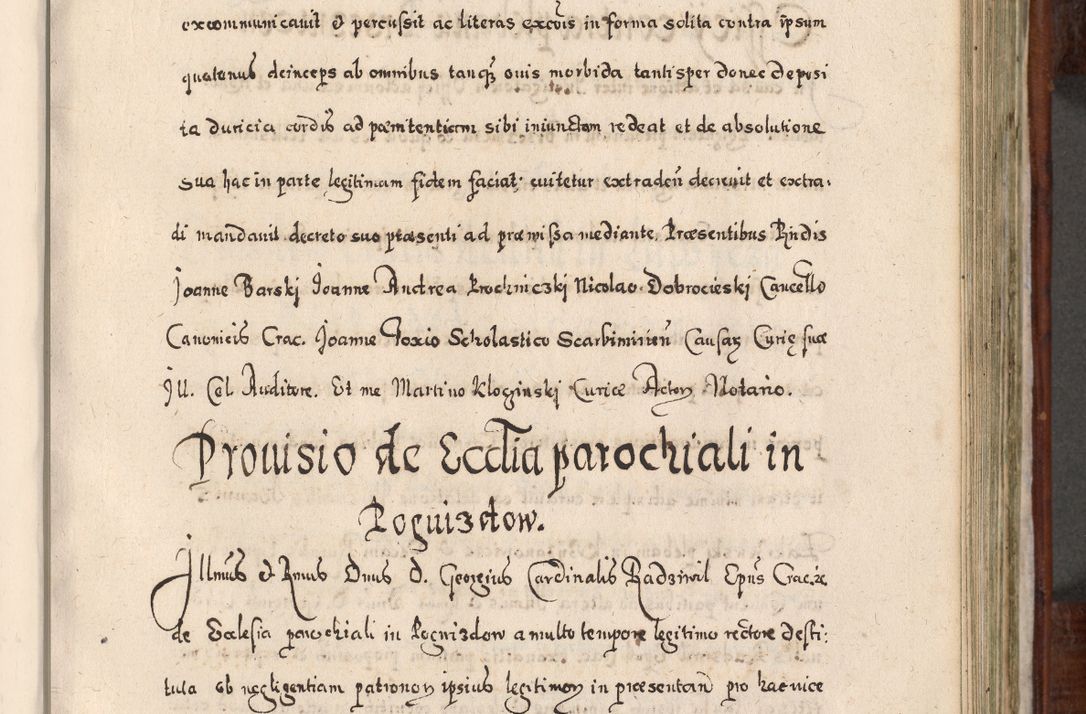 excommunicauit et percussit ac literas excōis in forma solita contra ipsum
quatenus deinceps ab omnibus tanq̃ ouis morbida tantisper donec deposi
ta duricia cordis ad pœnitentiam sibi iniunctam redeat et de absolutione
sua hac in parte legitimam fidem faciat; euitetur extraden̄ decreuit et extra-
di mandauit decreto suo præsenti ad præmissa mediante. Præsentibus Rndis
Joanne Barski Joanne Andrea Prochniczki Nicolao Dobrocieski Cancello
Canonicis Crac. Joanne Foxio Scholastico Scarbimirien̄ Causaꝝ Curię suæ
Ill. Col. Auditore. Et me Martino Kłoginski Curiæ Actoꝝ Notario.
Prouisio de Ecclīa parochiali in
Poguizdow.
Illmus et Rmus Dnus D. Georgius Cardinalis Radziwil Epūs Crac. &c
de Ecclesia parochiali in Poguizdow a multo tempore legitimo rectore desti:
tuta ob negligentiam patronoꝝ ipsius legitimoꝝ in præsentan̄ pro hac vice